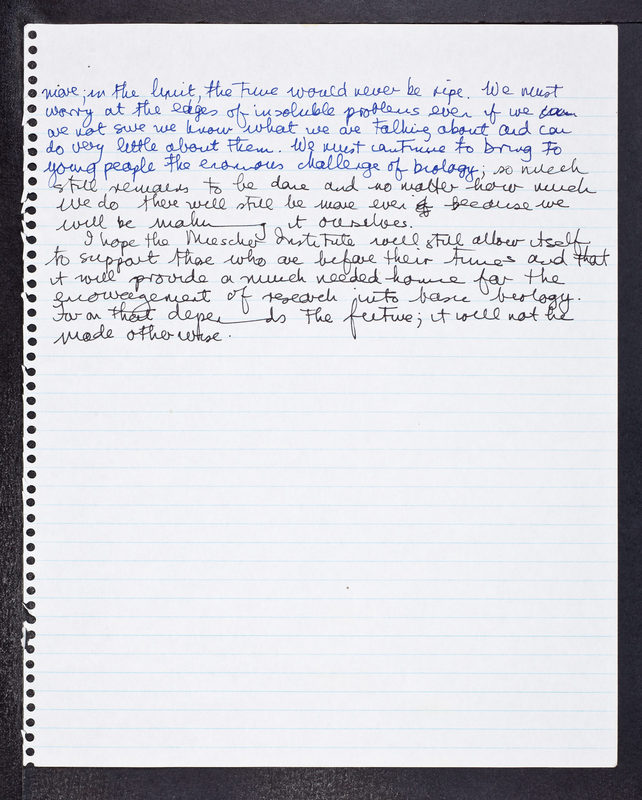 in the limit, the time would never be ripe. We must
worry at the edges of insoluble problems even if we
are not sure we know what we are talking about and can
do very little about them. We must continue to bring to
young people the enormous challenge of biology; so much
still remains to be done and no matter how much
we do there will still be more even because we
will be making it ourselves.
I hope the Miescher Institute will still allow itself
to support those who are before their times and that
it will provide a much needed home for the
encouragement of research into basic biology.
For on that depends the future; it will not be
made otherwise.